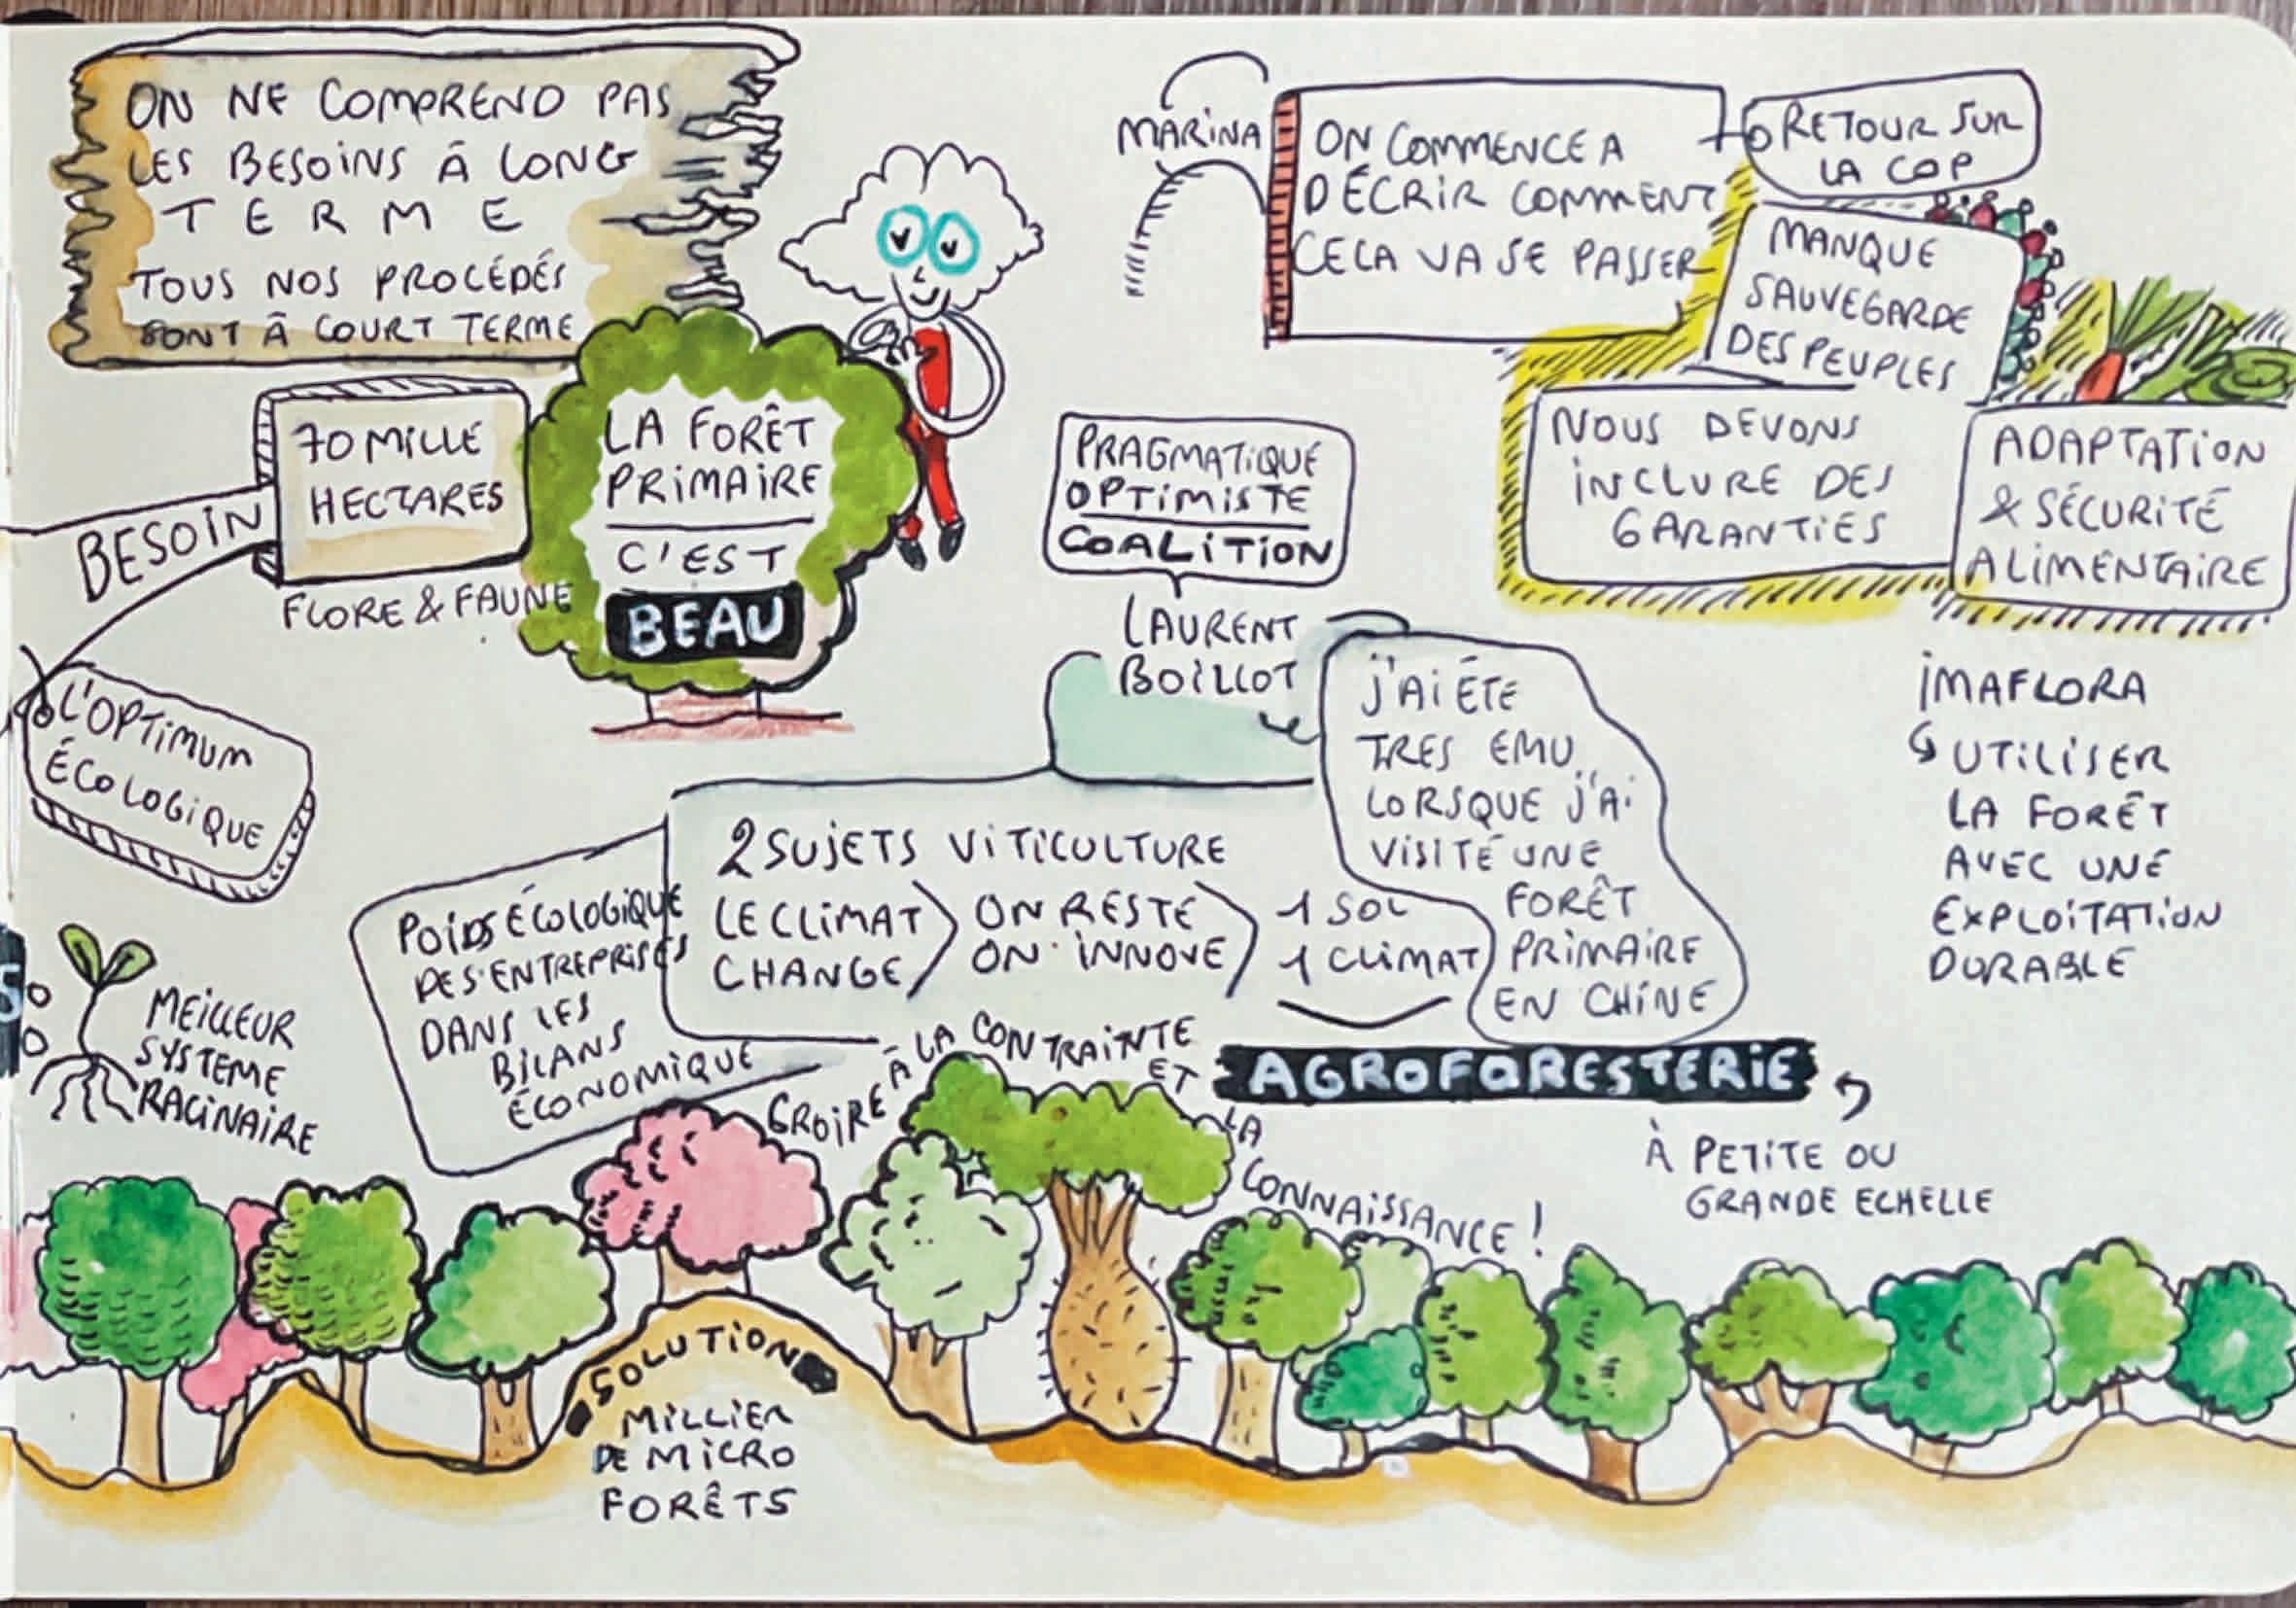 ON NE COMPREND PAS
LES BESOINS À LONG
TERME
TOUS NOS PROCÉDÉS
SONT À COURT TERME
BESOIN
70 MILLE
HECTARES
FLORE & FAUNE
LA FORÊT
PRIMAIRE
C'EST
BEAU
L'OPTIMUM
ÉCOLOGIQUE
MEILLEUR
SYSTEME
RACINAIRE
MARINA
ON COMMENCE A
DÉCRIR COMMENT
CELA VA SE PASSER
RETOUR SUR
LA COP
MANQUE
SAUVEGARDE
DES PEUPLES
NOUS DEVONS
INCLURE DES
GARANTIES
ADAPTATION
& SÉCURITÉ
ALIMENTAIRE
PRAGMATIQUE
OPTIMISTE
COALITION
LAURENT
BOILLOT
J'AI ÉTÉ
TRES EMU
LORSQUE J'AI
VISITÉ UNE
FORÊT
PRIMAIRE
EN CHINE
2 SUJETS VITICULTURE
LE CLIMAT
CHANGE
ON RESTE
ON INNOVE
1 SOL
1 CLIMAT
POIDS ÉCOLOGIQUE
DES ENTREPRISES
DANS LES
BILANS
ÉCONOMIQUE
CROIRE À LA CONTRAINTE
ET
LA
CONNAISSANCE !
AGROFORESTERIE
À PETITE OU
GRANDE ECHELLE
IMAFLORA
UTILISER
LA FORÊT
AVEC UNE
EXPLOITATION
DURABLE
SOLUTION
MILLIER
DE MICRO
FORÊTS